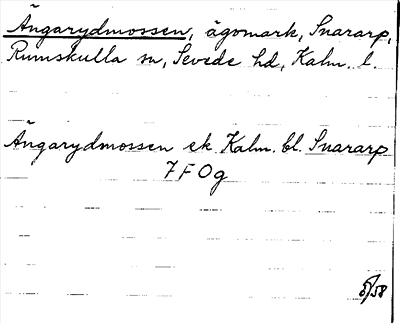 Ängarydmossen, ägomark, Snararp,
Rumskulla sn, Sevede hd, Kalm. l.
Ängarydmossen ek. Kalm. bl. Snararp
7F0g
5/58